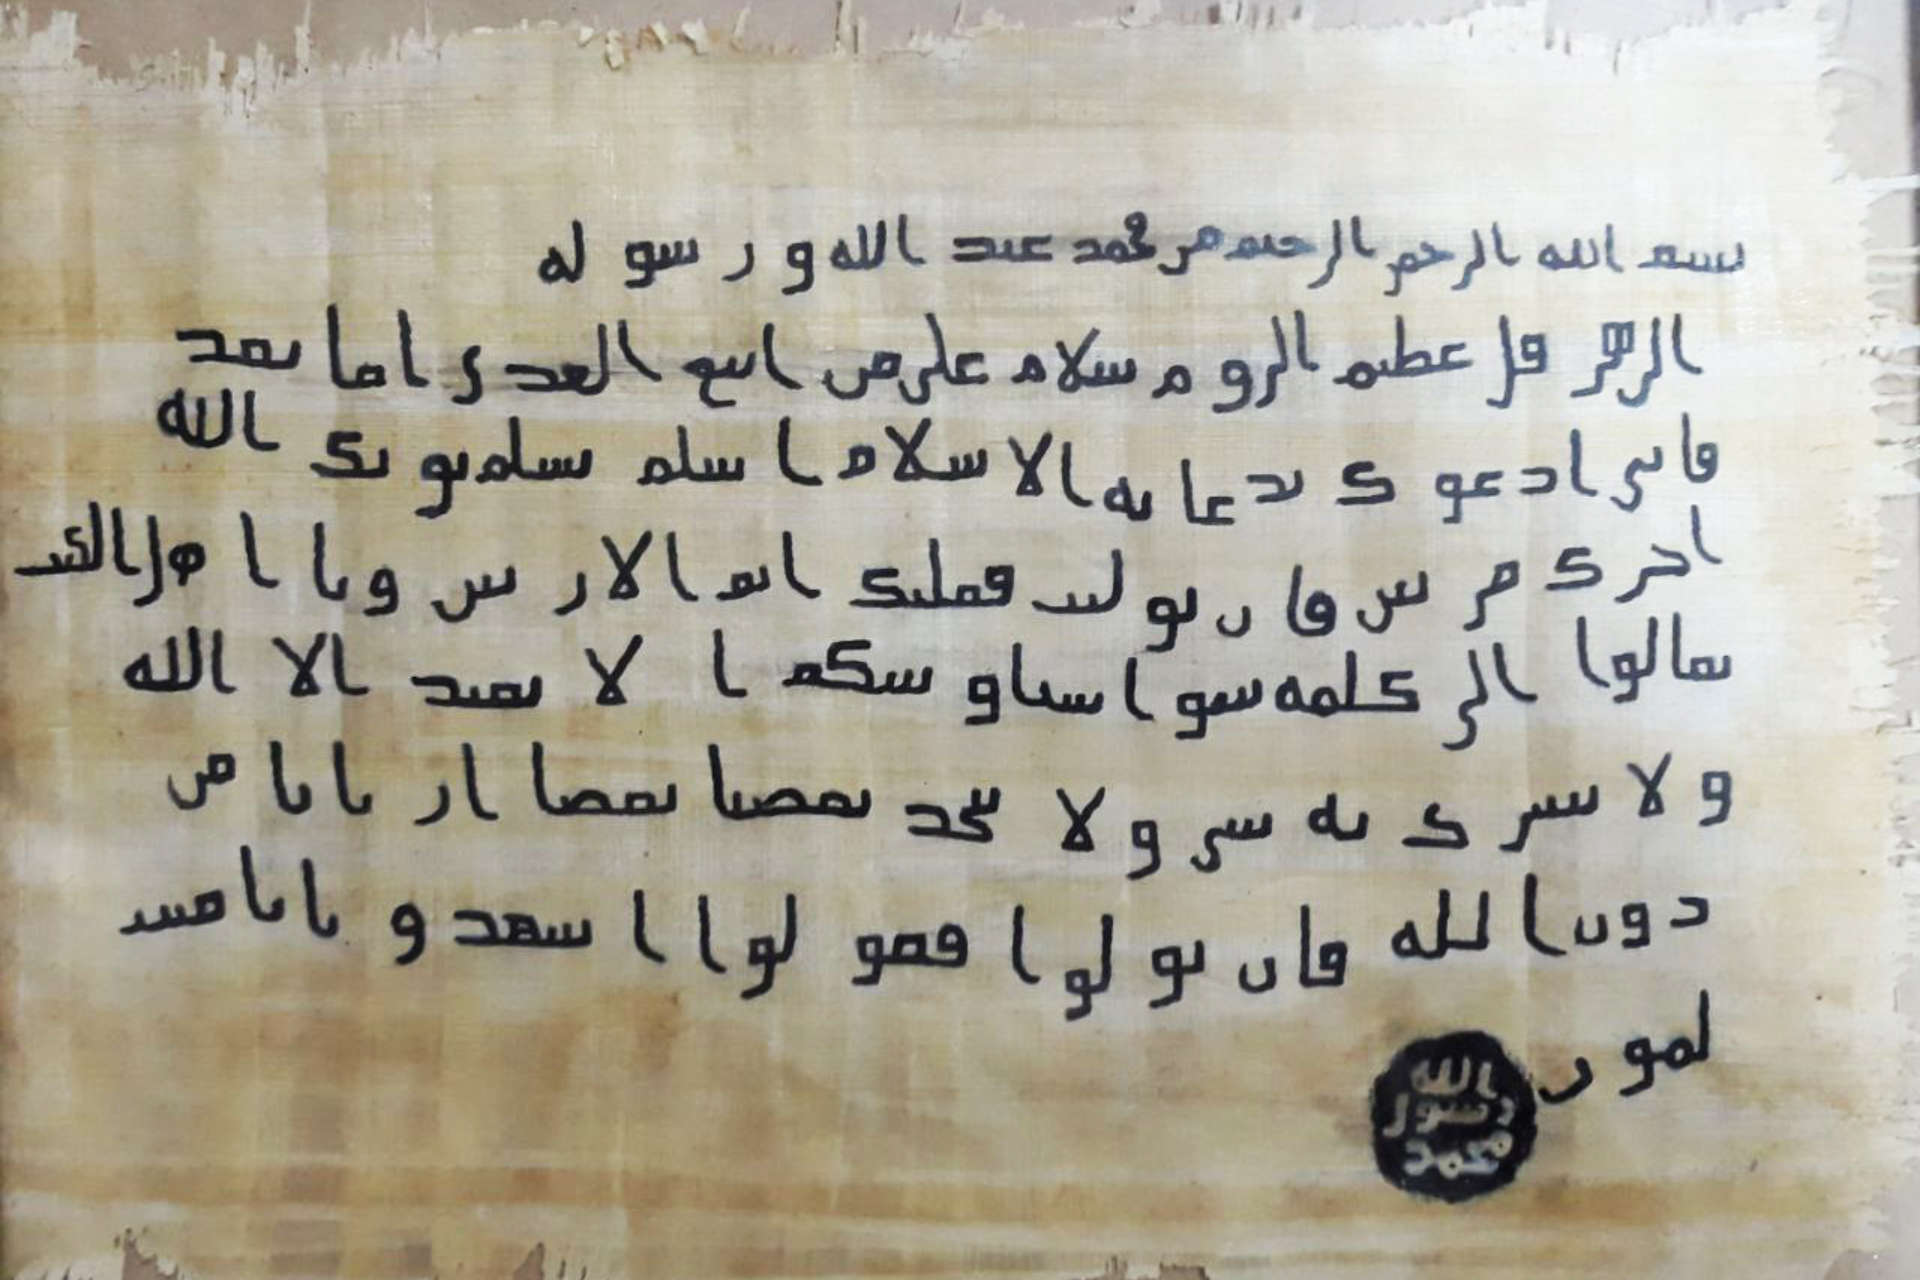 بسم الله الرحمن الرحيم من محمد عبد الله و رسو له
الى هر قل عظيم الرو م سلام على من اتبع الهد ى اما بعد
فانى ادعو ك بد عا ية الا سلام ا سلم تسلم يو تك الله
اجر ك مر تين فا ن تو ليت فعليك اثم الا ر يس و يا ا هل الكتب
تعالوا الى كلمة سو ا بيننا و بينكم ا لا نعبد الا الله
و لا نشر ك به شى و لا يتخذ بعضنا بعضا ار بابا من
دون الله فا ن تو لو ا فقو لوا ا شهد و بانا مس
لمو ن
الله
رسول
محمد